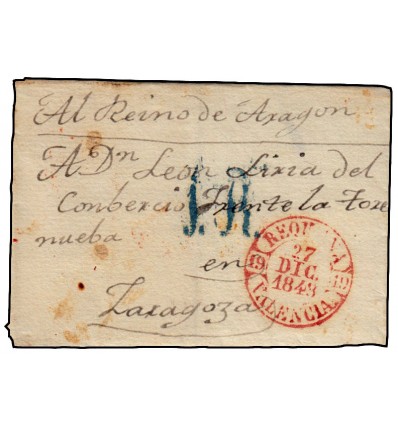 Al Reino de Aragon
A Dn Leon Liria del
Conbercio Frente la Torre
nueba
en
Zaragoza
1.R.
REQUENA
27
DIC.
1848
19 19
VALENCIA.